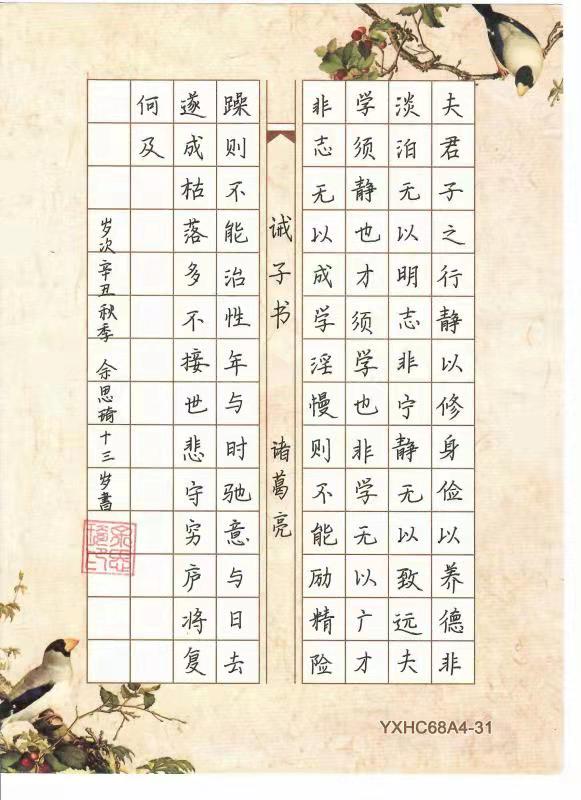 夫君子之行静以修身俭以养德非
淡泊无以明志非宁静无以致远夫
学须静也才须学也非学无以广才
非志无以成学淫慢则不能励精险
诫子书 诸葛亮
躁则不能治性年与时驰意与日去
遂成枯落多不接世悲守穷庐将复
何及
岁次辛丑秋季 余思琦十三岁书
YXHC68A4-31